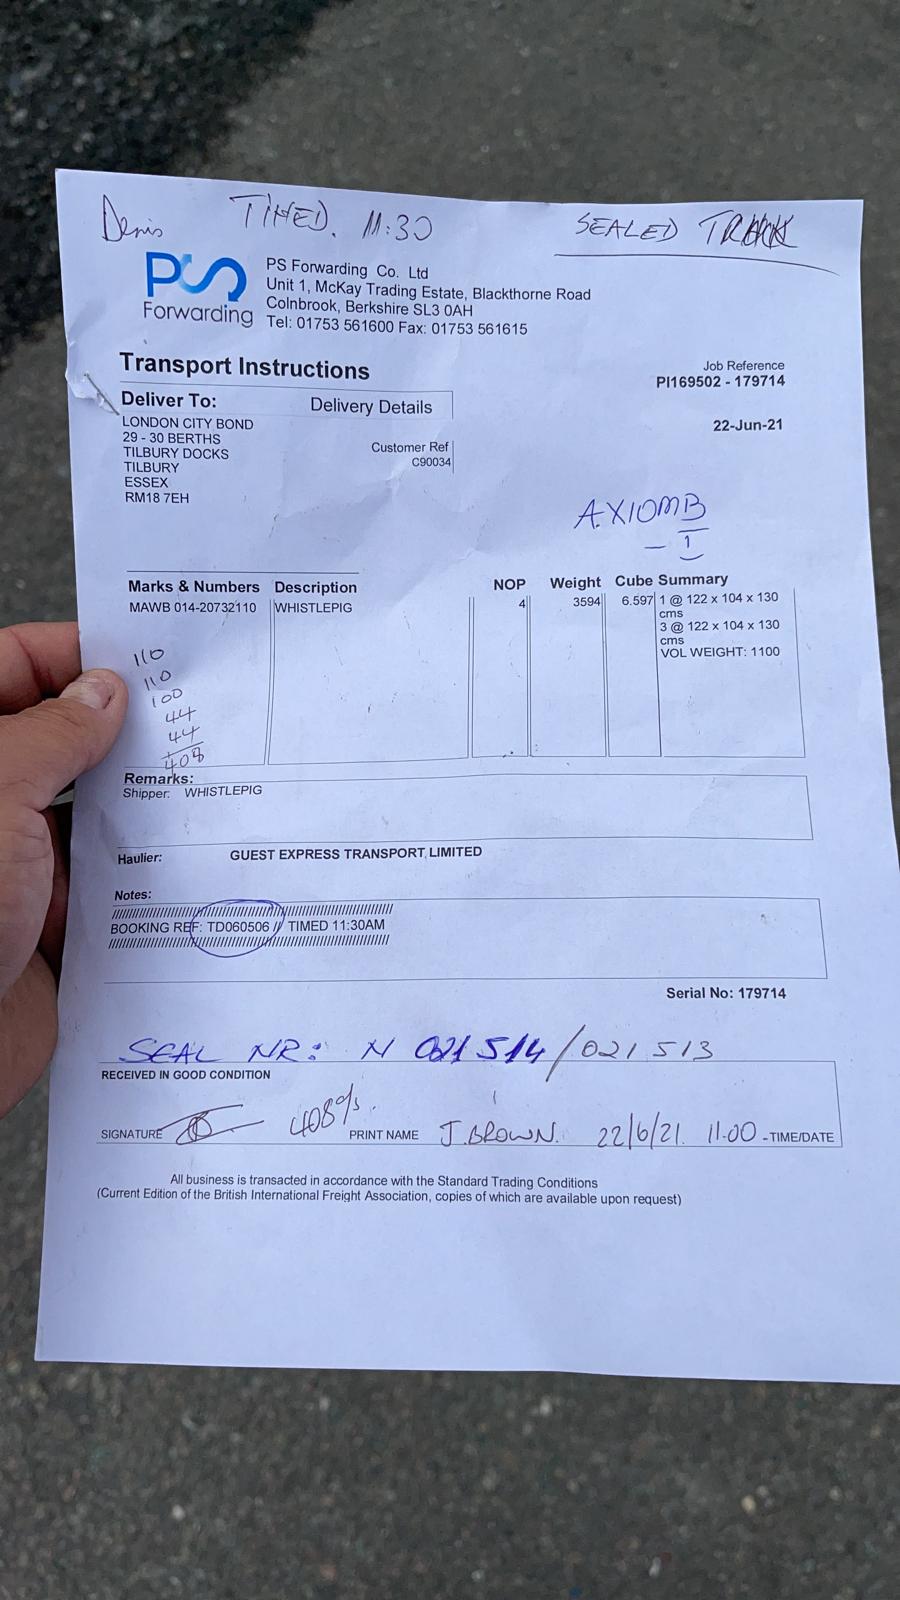 Denis TIMED. 11:30 SEALED TRUCK
PS
Forwarding
PS Forwarding Co. Ltd
Unit 1, McKay Trading Estate, Blackthorne Road
Colnbrook, Berkshire SL3 0AH
Tel: 01753 561600 Fax: 01753 561615
Transport Instructions
Job Reference
PI169502 - 179714
Deliver To: Delivery Details
22-Jun-21
LONDON CITY BOND
29 - 30 BERTHS
TILBURY DOCKS
TILBURY
ESSEX
RM18 7EH
Customer Ref
C90034
AXIOMB
- 1
Marks & Numbers Description NOP Weight Cube Summary
MAWB 014-20732110 WHISTLEPIG 4 3594 6.597 1 @ 122 x 104 x 130
cms
3 @ 122 x 104 x 130
cms
VOL WEIGHT: 1100
110
110
100
44
44
408
Remarks:
Shipper: WHISTLEPIG
Haulier: GUEST EXPRESS TRANSPORT LIMITED
Notes:
//////////////////////////////////////////////////////////////////////
BOOKING REF: TD060506 // TIMED 11:30AM
//////////////////////////////////////////////////////////////////////
Serial No: 179714
SEAL NR: N 021514/021513
RECEIVED IN GOOD CONDITION
SIGNATURE 408 PRINT NAME J.BROWN. 22/6/21. 11.00 - TIME/DATE
All business is transacted in accordance with the Standard Trading Conditions
(Current Edition of the British International Freight Association, copies of which are available upon request)